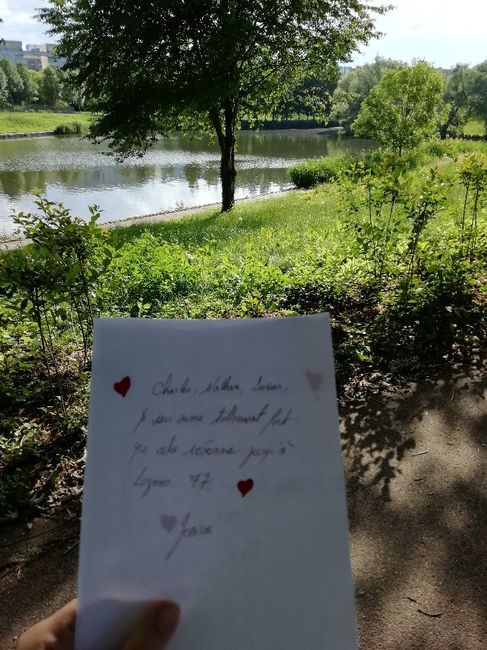 Charles, Nathan, Susan,
je vous aime tellement fort
que cela résonne jusqu'à
Lognes 77